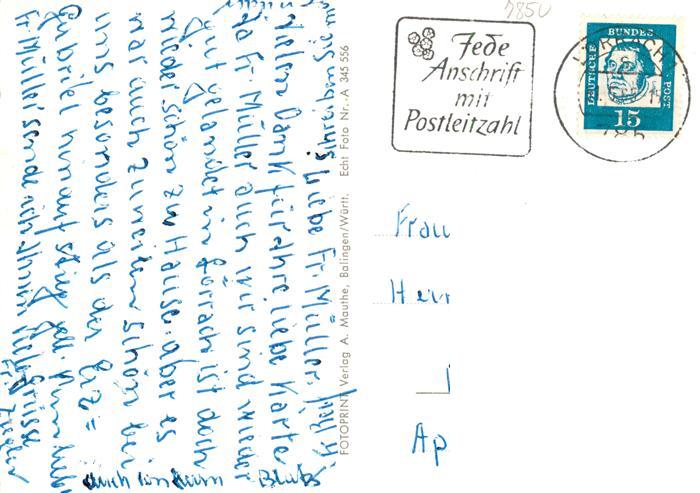 7850
Jede
Anschrift
mit
Postleitzahl
DEUTSCHE BUNDES POST
15
LÖRRACH
785
Frau
Herr
Ap
FOTOPRINT Verlag A. Mauthe, Balingen/Württ. Echt Foto Nr. A 345 556
schreiben Sie mir
Liebe Fr. Müller,
Vielen Dank für Ihre liebe Karte
Ja Fr Müller auch wir sind wieder
gut gelandet in Lörrach ist doch
wieder schön zu Hause. aber es
war auch zu schön bei
uns besonders als der Erz=
Gabriel hinauf stieg gell. Nun liebe
Fr Müller sende ich Ihnen viele Grüsse
auch von